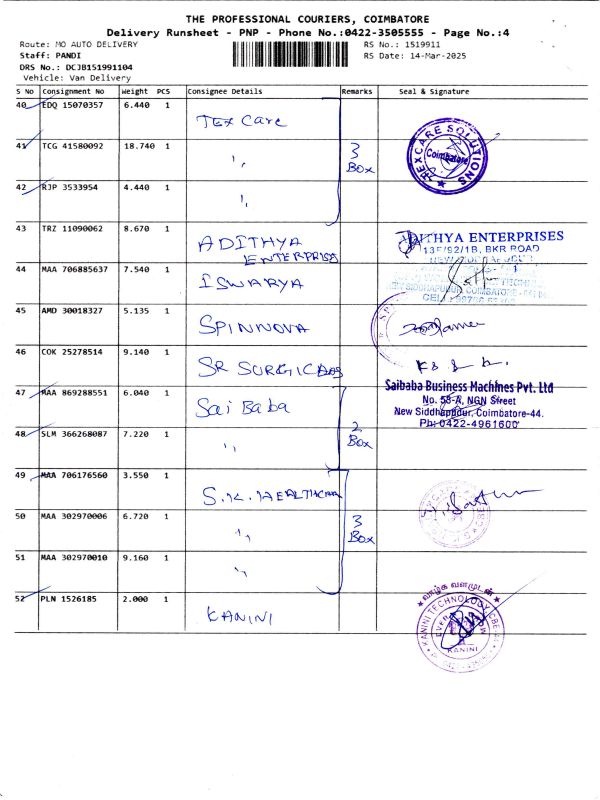 THE PROFESSIONAL COURIERS, COIMBATORE
Delivery Runsheet - PNP - Phone No.:0422-3505555 - Page No.:4
Route: MO AUTO DELIVERY
RS No.: 1519911
Staff: PANDI
RS Date: 14-Mar-2025
DRS No.: DCJB151991104
Vehicle: Van Delivery
S No Consignment No Weight PCS Consignee Details Remarks Seal & Signature
40 EDQ 15070357 6.440 1 Tex Care
41 TCG 41580092 18.740 1 " 3 Box
TEXCARE SOLUTIONS
Coimbatore
42 RJP 3533954 4.440 1 "
43 TRZ 11090062 8.670 1 ADITHYA ENTERPRISES
ADITHYA ENTERPRISES
13F/92/1B, BKR ROAD
44 MAA 706885637 7.540 1 ISWARYA
45 AMD 30018327 5.135 1 SPINNOVA
46 COK 25278514 9.140 1 SR SURGICALS
47 MAA 869288551 6.040 1 Sai Baba
Saibaba Business Machines Pvt. Ltd
No. 58-A, NGN Street
New Siddhapudur, Coimbatore-44.
Ph: 0422-4961600
48 SLM 366268087 7.220 1 " 2 Box
49 MAA 706176560 3.550 1 S.K. HEALTHCARE
50 MAA 302970006 6.720 1 " 3 Box
51 MAA 302970010 9.160 1 "
52 PLN 1526185 2.000 1 KANINI
வாழ்க வளமுடன்
KANINI TECHNOLOGY CBE
KANINI